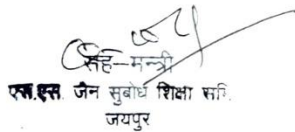 सह-मन्त्री
एस.एस. जैन सुबोध शिक्षा समि.
जयपुर